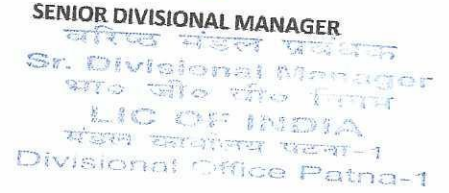 SENIOR DIVISIONAL MANAGER
वरिष्ठ मंडल प्रबंधक
Sr. Divisional Manager
भा० जी० बी० निगम
LIC OF INDIA
मंडल कार्यालय पटना-1
Divisional Office Patna-1